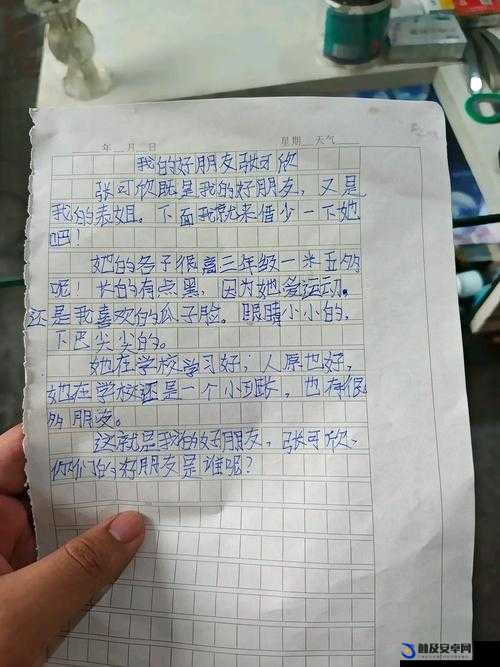 年 月 日 星期 天气
我的好朋友张可欣
张可欣既是我的好朋友，又是
我的表姐。下面我就来借少一下她
吧！
她的各子很高三年级一米五多
呢！长的有点黑，因为她爱运动。
还是我喜欢的瓜子脸。眼睛小小的，
下巴尖尖的。
她在学校学习好；人原也好，
她在学校还是一个小班长，也有很
多朋友。
这就是我的好朋友，张可欣、
你们的好朋友是谁呢？
触及安卓网